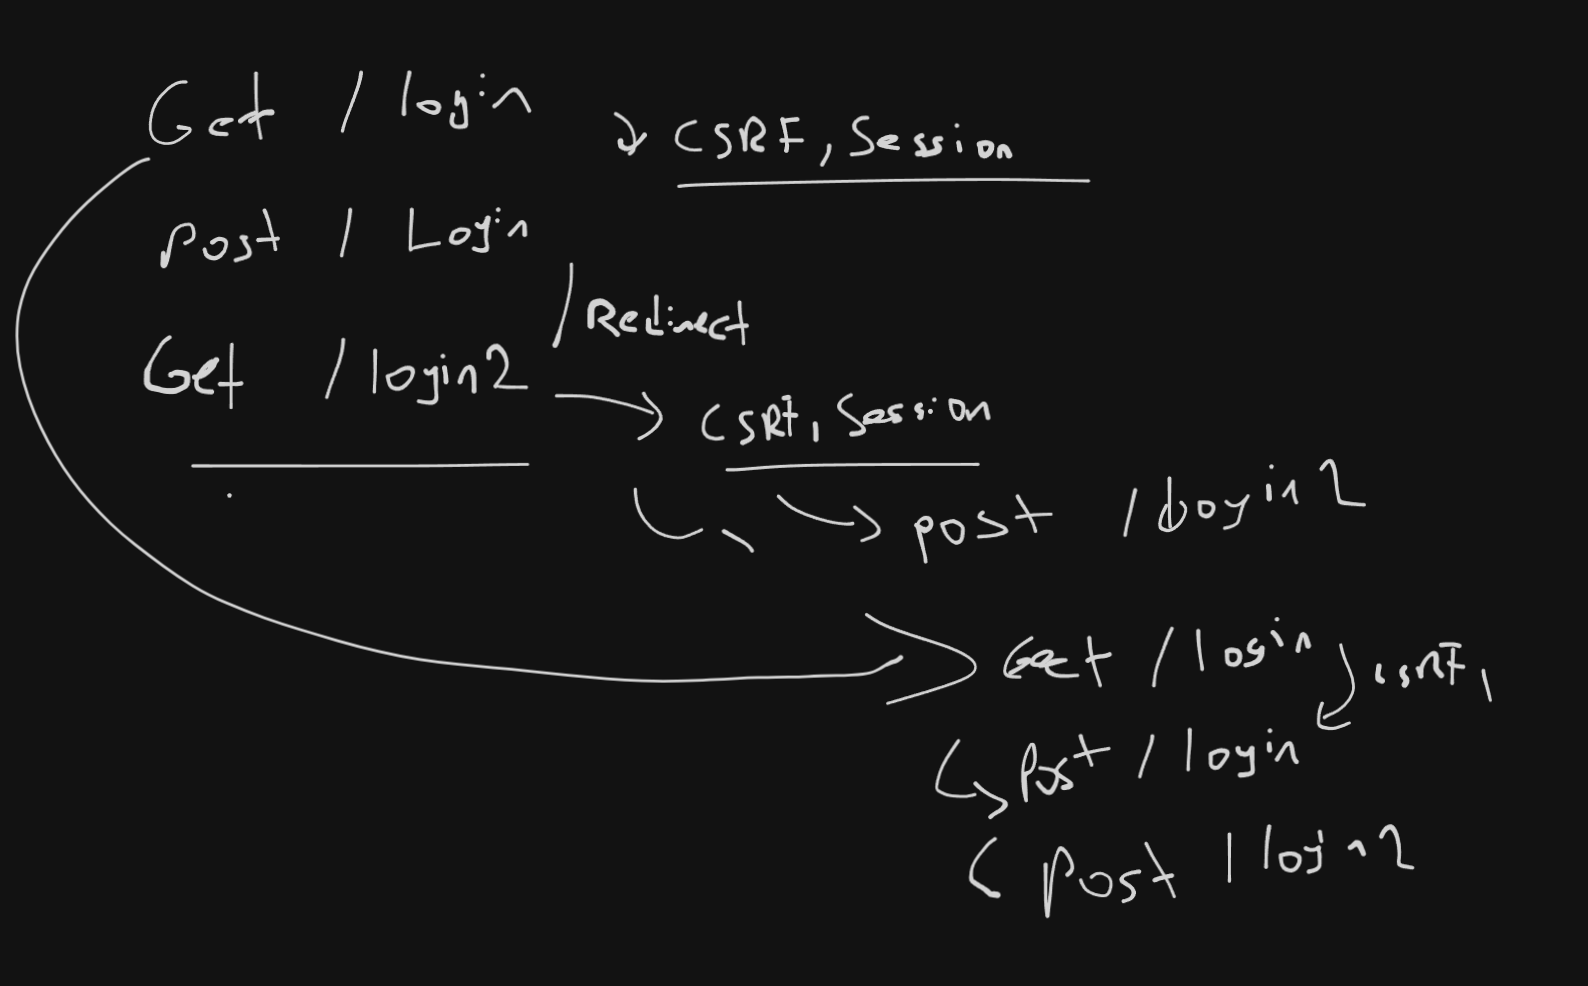 Get / login
CSRF, Session
Post / Login
/ Redirect
Get / login2
CSRF, Session
post / login2
Get / login
CSRF,
Post / login
Post / login2